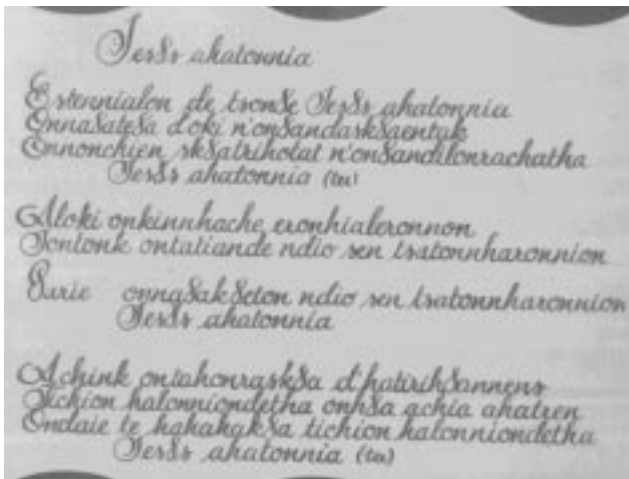 Jes8s ahatonnia
Estennialon de tson8e Jes8s ahatonnia
Onna8ate8a d'oki n'on8andask8aentak
Ennonchien sk8atrihotat n'on8andilonrachatha
Jes8s ahatonnia
Aloki onkinnhache eronhialeronnon
Jontonk ontatiande ndio sen tsatonnharonnion
8arie onna8ak8eton ndio sen tsatonnharonnion
Jes8s ahatonnia
Achink ontahonrask8a d'hatirih8annens
Tichion halonniondetha onh8a achia ahatren
Ondaie te hahahak8a tichion halonniondetha
Jes8s ahatonnia